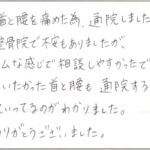 首と腰を痛めた為、通院しました
整骨院で不安もありましたが、
ムな感じで相談しやすかったで
いたかった首と腰も通院する
っていってるのがわかりました。
りがとうございました。